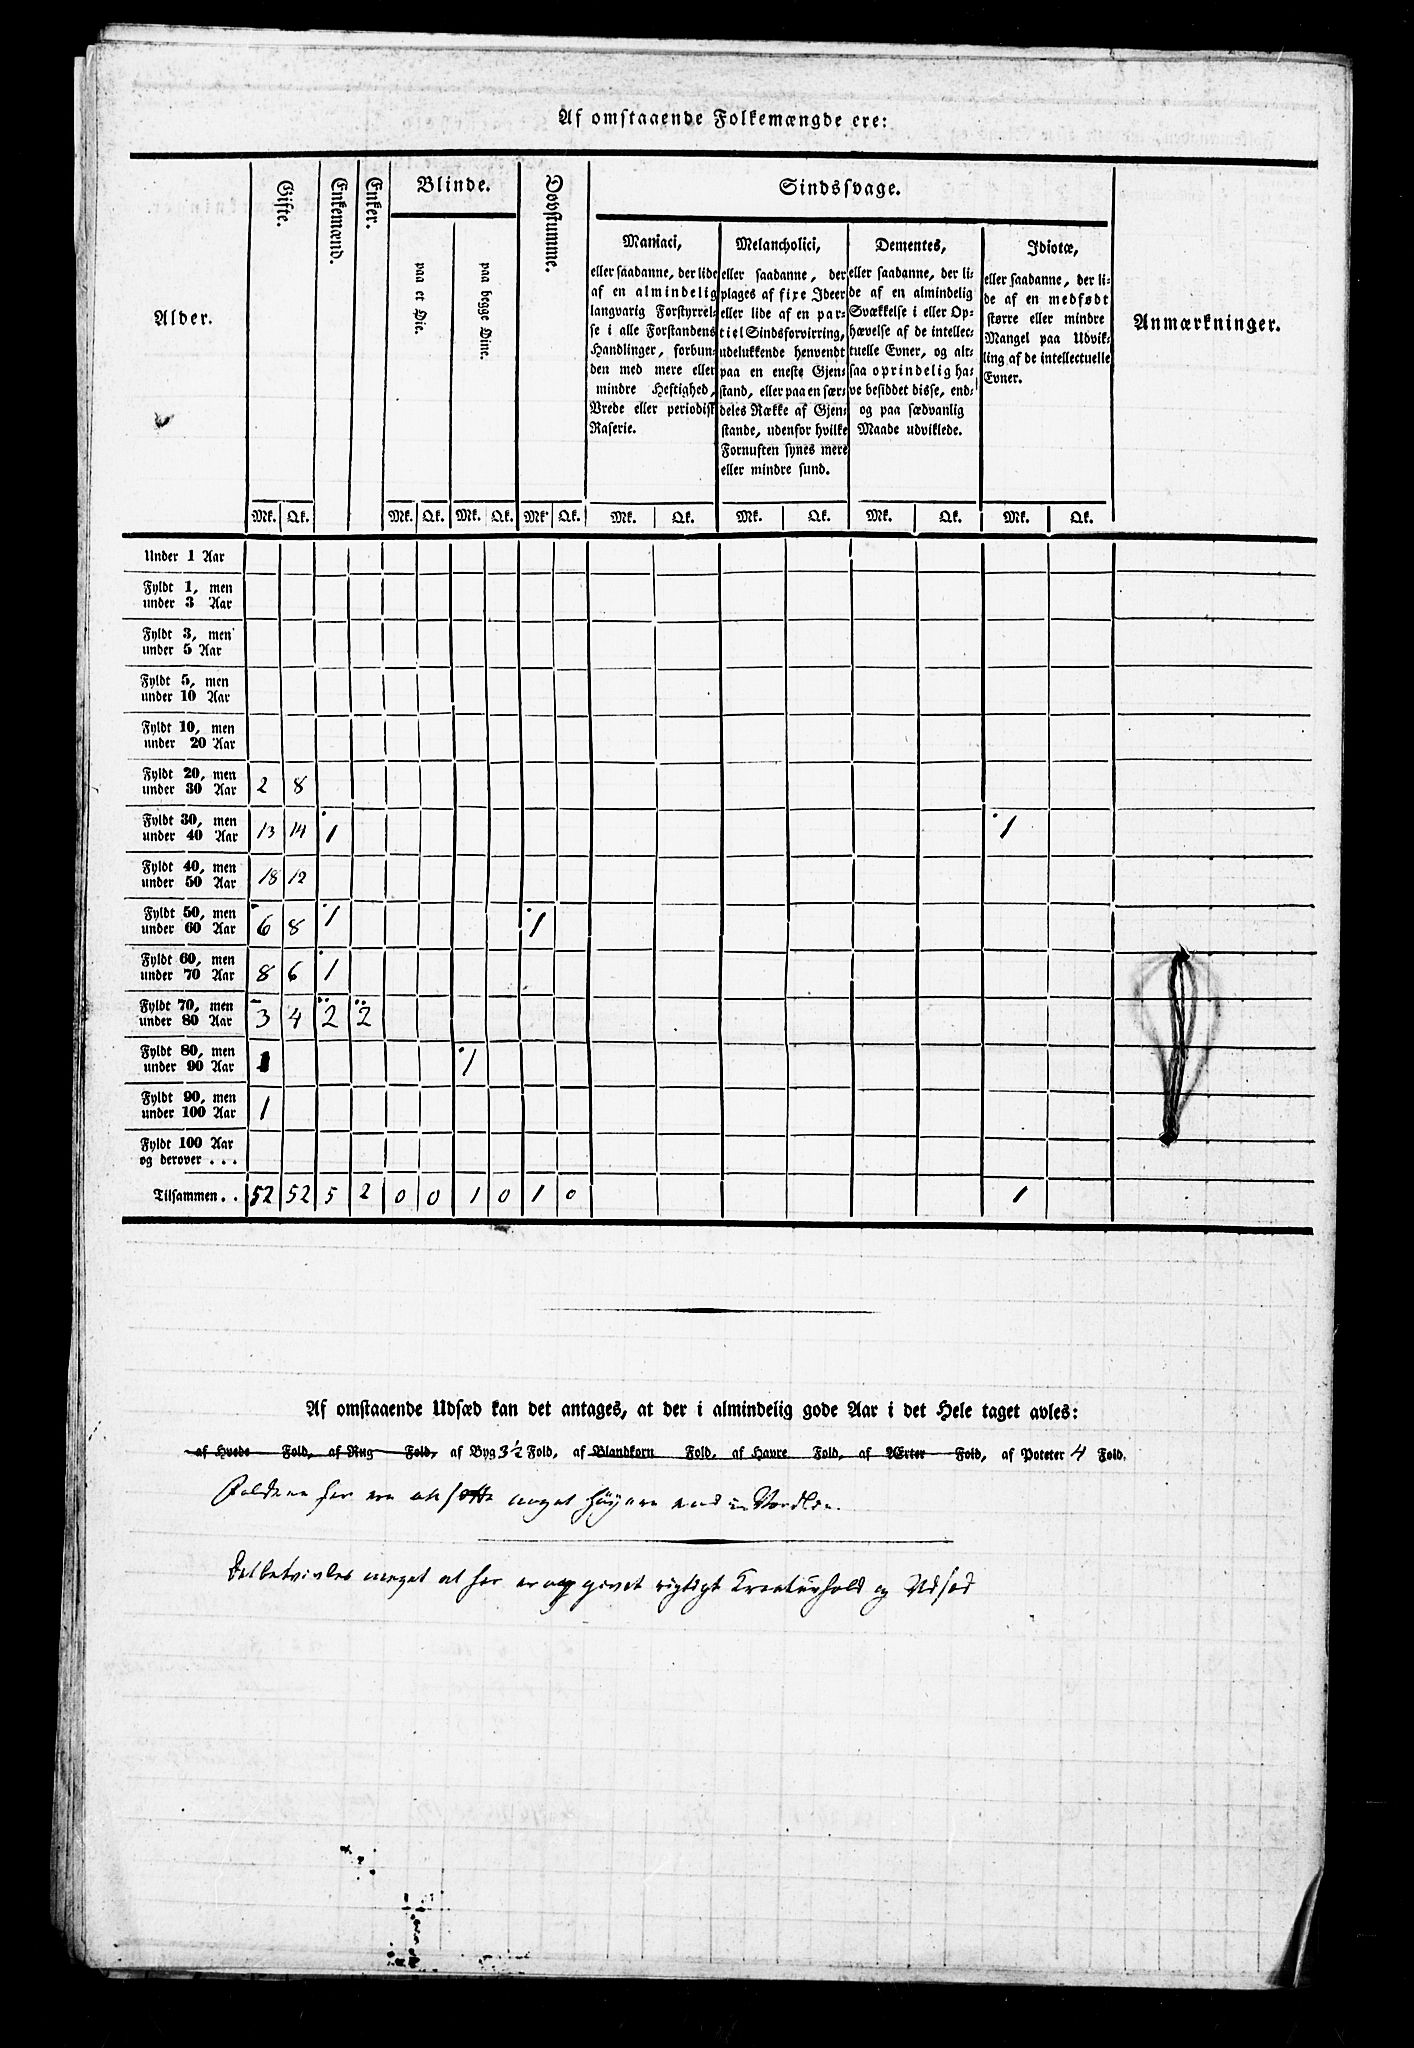 Af omstaaende Folkemængde ere:
Alder. Gifte. Enkemænd. Enker. Blinde. Dovstumme. Sindssvage. Anmærkninger.
paa et Øie. paa begge Øine.
Maniaci,
eller saadanne, der lide
af en almindelig
langvarig Forstyrrel-
se i alle Forstandens
Handlinger, forbun-
den med mere eller
mindre Heftighed,
Vrede eller periodisk
Raserie.
Melancholici,
eller saadanne, der
plages af fixe Ideer
eller lide af en par-
tiel Sindsforvirring,
udelukkende henvendt
paa en eneste Gjen-
stand, eller paa en sær-
deles Række af Gjen-
stande, udenfor hvilke
Fornuften synes mere
eller mindre sund.
Dementes,
eller saadanne, der li-
de af en almindelig
Svækkelse i eller Op-
hævelse af de intellec-
tuelle Evner, og alt-
saa oprindelig ha-
ve besiddet disse, end-
og paa sædvanlig
Maade udviklede.
Idiotæ,
eller saadanne, der li-
de af en medfødt
større eller mindre
Mangel paa Udvik-
ling af de intellectuelle
Evner.
Mk. Qk. Mk. Qk. Mk. Qk. Mk. Qk. Mk. Qk. Mk. Qk. Mk. Qk. Mk. Qk.
Under 1 Aar
Fyldt 1, men
under 3 Aar
Fyldt 3, men
under 5 Aar
Fyldt 5, men
under 10 Aar
Fyldt 10, men
under 20 Aar
Fyldt 20, men
under 30 Aar 2 8
Fyldt 30, men
under 40 Aar 13 14 1 1
Fyldt 40, men
under 50 Aar 18 12
Fyldt 50, men
under 60 Aar 6 8 1 1
Fyldt 60, men
under 70 Aar 8 6 1
Fyldt 70, men
under 80 Aar 3 4 2 2
Fyldt 80, men
under 90 Aar 1 1
Fyldt 90, men
under 100 Aar 1
Fyldt 100 Aar
og derover . . .
Tilsammen . . 52 52 5 2 0 0 1 0 1 0 1
Af omstaaende Udsæd kan det antages, at der i almindelig gode Aar i det Hele taget avles:
af Hvede Fold, af Rug Fold, af Byg 3½ Fold, af Blandkorn Fold, af Havre Fold, af Ærter Fold, af Poteter 4 Fold.
Foldene her ere ansatte noget høyere end i Vordlen.
Det betvivles meget at her er opgivet rigtigt Creaturhold og Udsæd